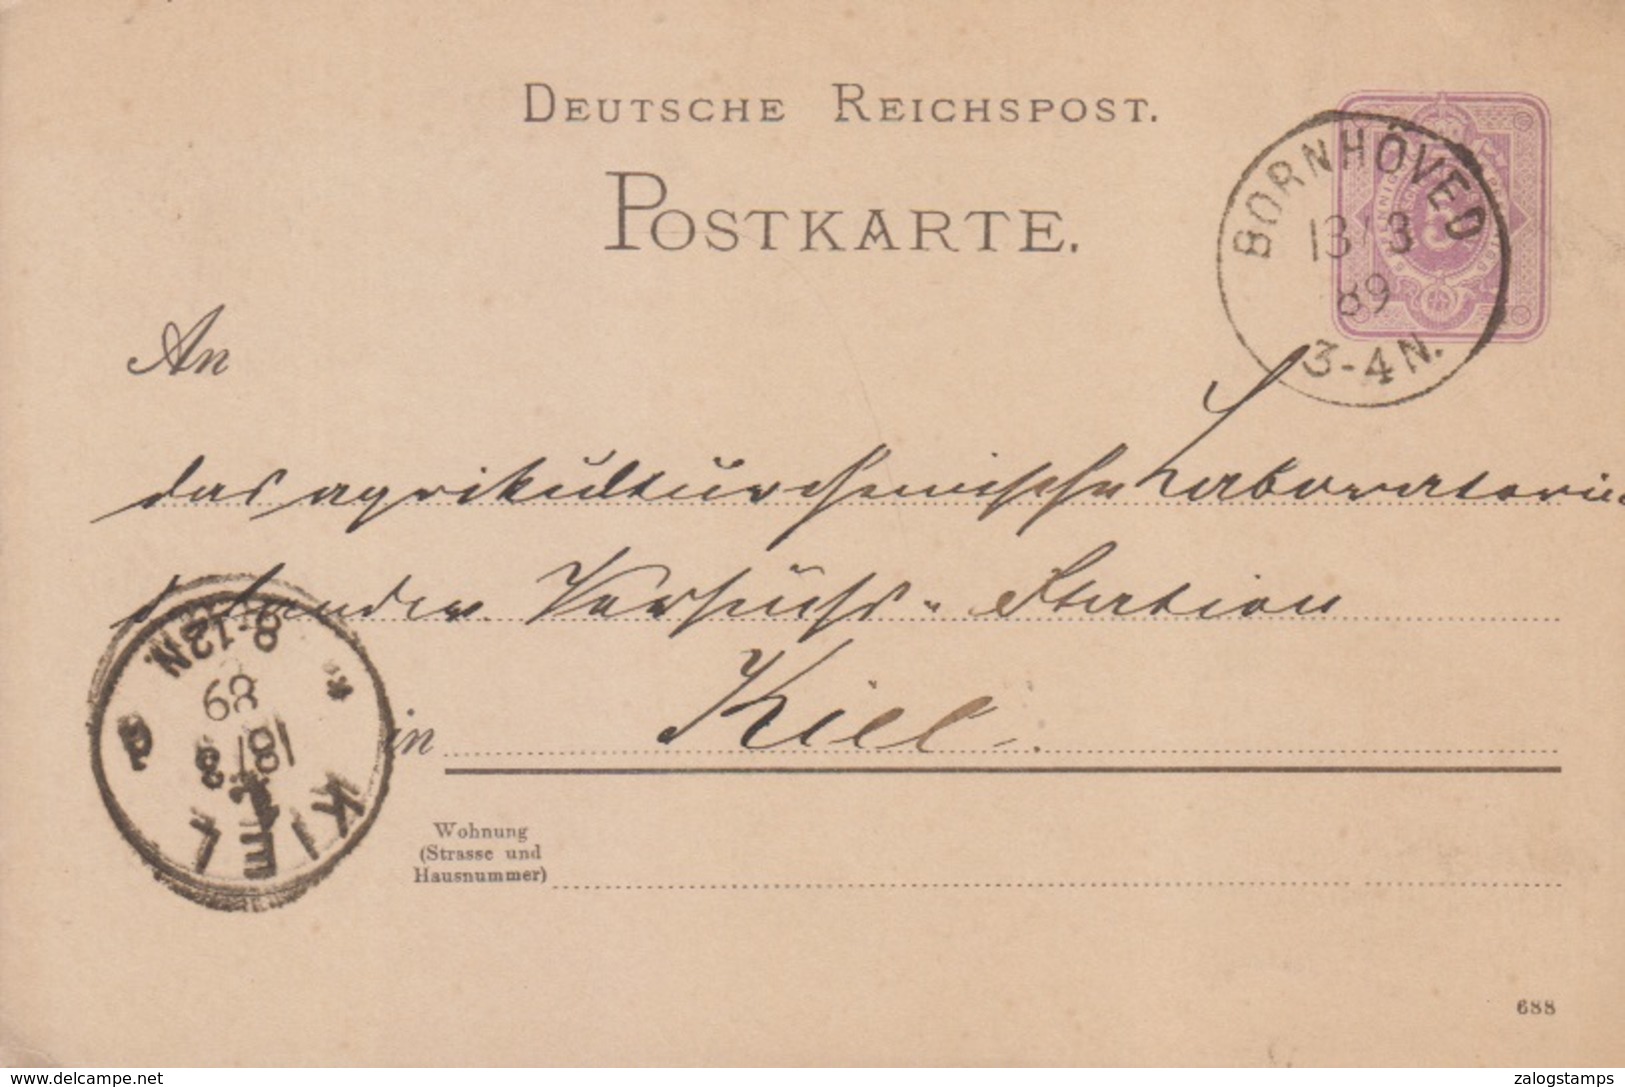 DEUTSCHE REICHSPOST.
POSTKARTE.
BORNHÖVED
13 3
89
3-4 N.
An
das agrikulturchemische Laboratorium
der Versuchs-Station
in Kiel.
KIEL
8-12N.
89
Wohnung
(Strasse und
Hausnummer)
688
www.delcampe.net
zalogstamps